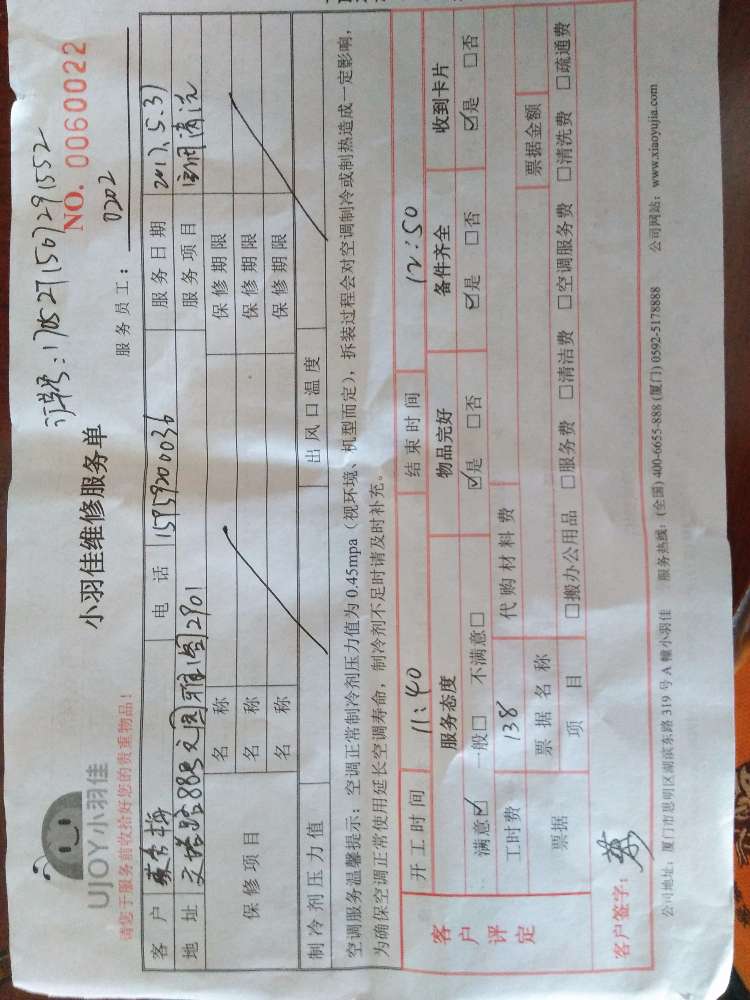 订单号：1705271507291552
UJOY小羽佳
小羽佳维修服务单
NO. 0060022
请您于服务前收拾好您的贵重物品！
服务员工： 0202
客户 电话 15959200036 服务日期 2017.5.31
地址 文塔路88号文园雅阁2901 服务项目 空调清洗
保修项目 名称 保修期限
名称 保修期限
名称 保修期限
制冷剂压力值 出风口温度
空调服务温馨提示：空调正常制冷剂压力值为 0.45mpa（视环境、机型而定），拆装过程会对空调制冷或制热造成一定影响，
为确保空调正常使用延长空调寿命，制冷剂不足时请及时补充。
客户评定
开工时间 11:40 结束时间 12:50
服务态度 物品完好 备件齐全 收到卡片
满意☑ 一般□ 不满意□ ☑是 □否 ☑是 □否 ☑是 □否
工时费 138 代购材料费
票据 票据名称 票据金额
项目 □搬办公用品 □服务费 □清洁费 □空调服务费 □清洗费 □疏通费
客户签字：
公司地址：厦门市思明区湖滨东路 319 号 A 幢小羽佳 服务热线：(全国) 400-6655-888 (厦门) 0592-5178888 公司网站：www.xiaoyujia.com